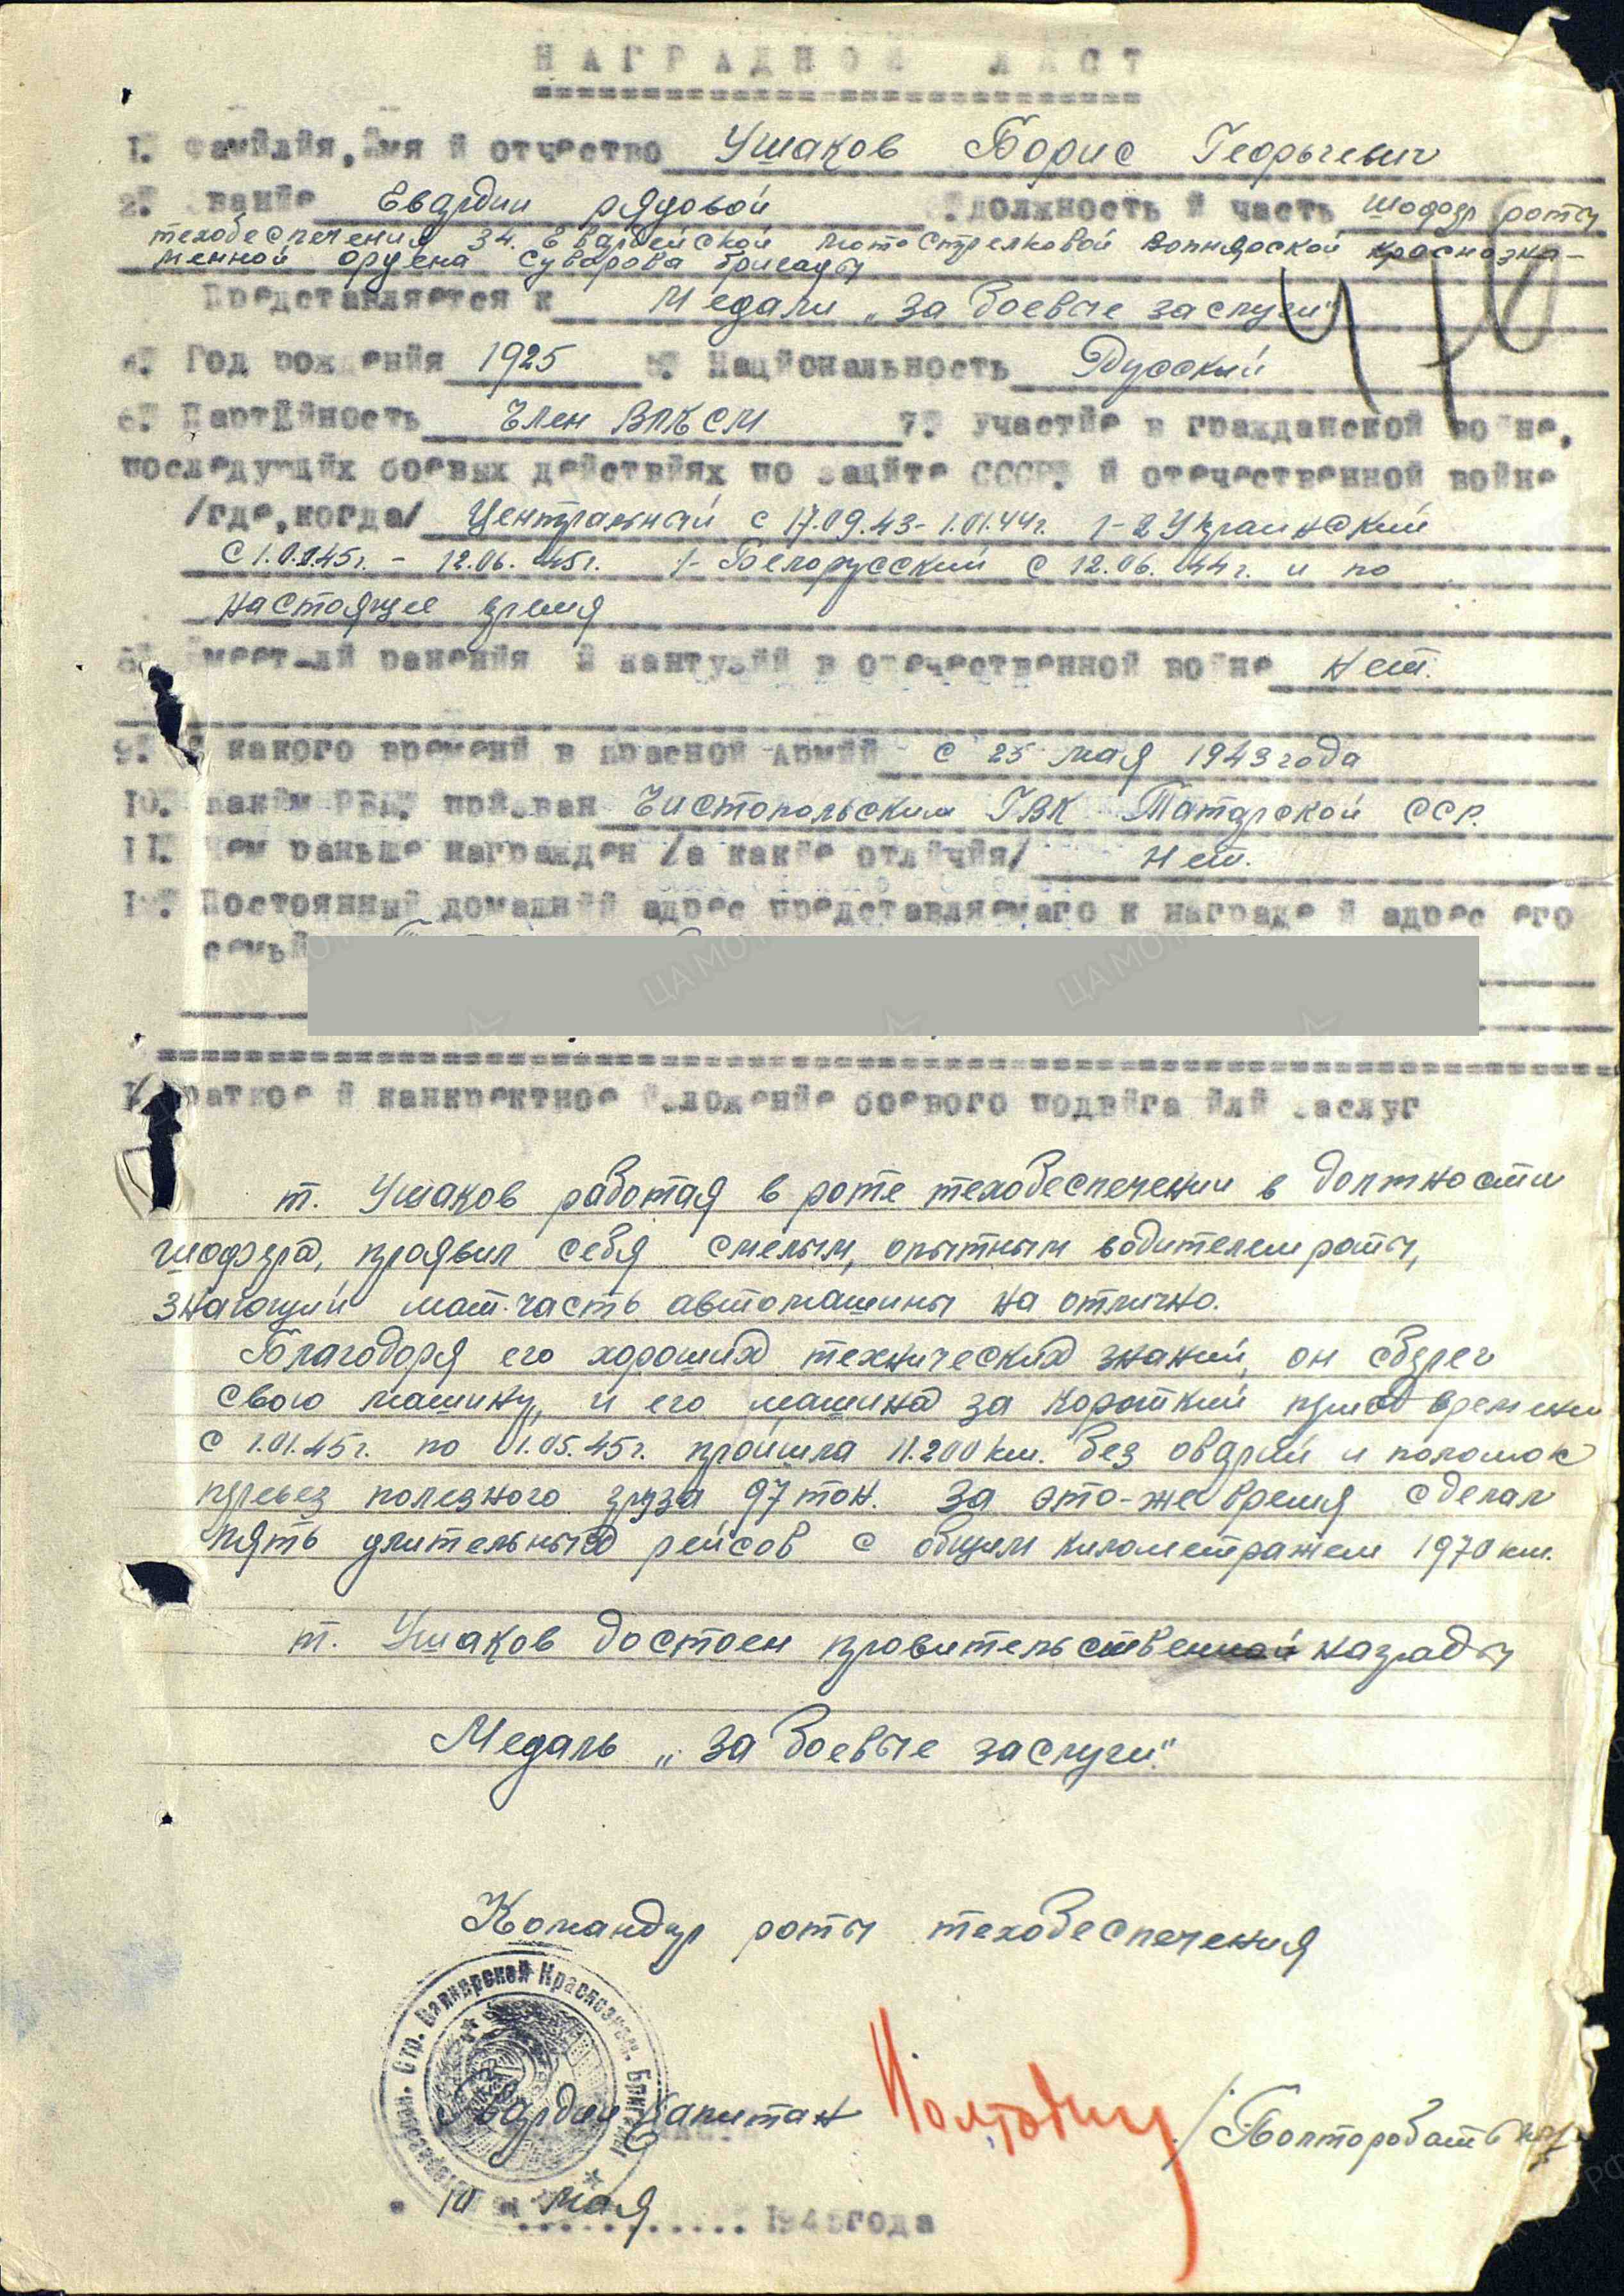 НАГРАДНОЙ ЛИСТ
1. Фамилия, имя и отчество Ушаков Борис Георгиевич
2. Звание Гвардии рядовой 3. должность и часть шофер роты
техобеспечения 34. Гвардейской мотострелковой Вапнярской краснозна-
менной ордена Суворова бригады
Представляется к Медали „За боевые заслуги"
470
4. Год рождения 1925 5. Национальность Русский
6. Партийность Член ВЛКСМ 7. Участие в гражданской войне,
последующих боевых действиях по защите СССР и отечественной войне
/где, когда/ Центральный с 17.09.43 - 1.01.44г. 1-2 Украинский
с 1.01.45г. - 12.06.45г. 1-Белорусский с 12.06.44г. и по
настоящее время
8. Имеет-ли ранения и кантузии в отечественной войне Нет.
9. С какого времени в Красной Армии с 25 мая 1943 года
10. Каким РВК призван Чистопольским ГВК Татарской ССР.
11. Чем раньше награжден /за какие отличия/ Нет.
12. Постоянный домашний адрес представляемаго к награде и адрес его
семьи
Краткое и канкректное изложение боевого подвига или заслуг
т. Ушаков работая в роте техобеспечении в должности
шофера, проявил себя смелым, опытным водителем роты,
знающий мат.часть автомашины на отлично.
Благодоря его хороших технических знаний, он сберег
свою машину, и его машина за короткий приод времени
с 1.01.45г. по 1.05.45г. прошла 11.200 км. без оварий и поломок
перевез полезного груза 97 тон. За это-же время сделал
пять длительных рейсов с общим километражем 1970 км.
т. Ушаков достоен провительственной награды
Медаль „За боевые заслуги"
Командир роты техобеспечения
Стр. Вапнярской Краснознам. Бригады
Гвардии Капитан /Полторобатько/
" 10 " мая 1945 года